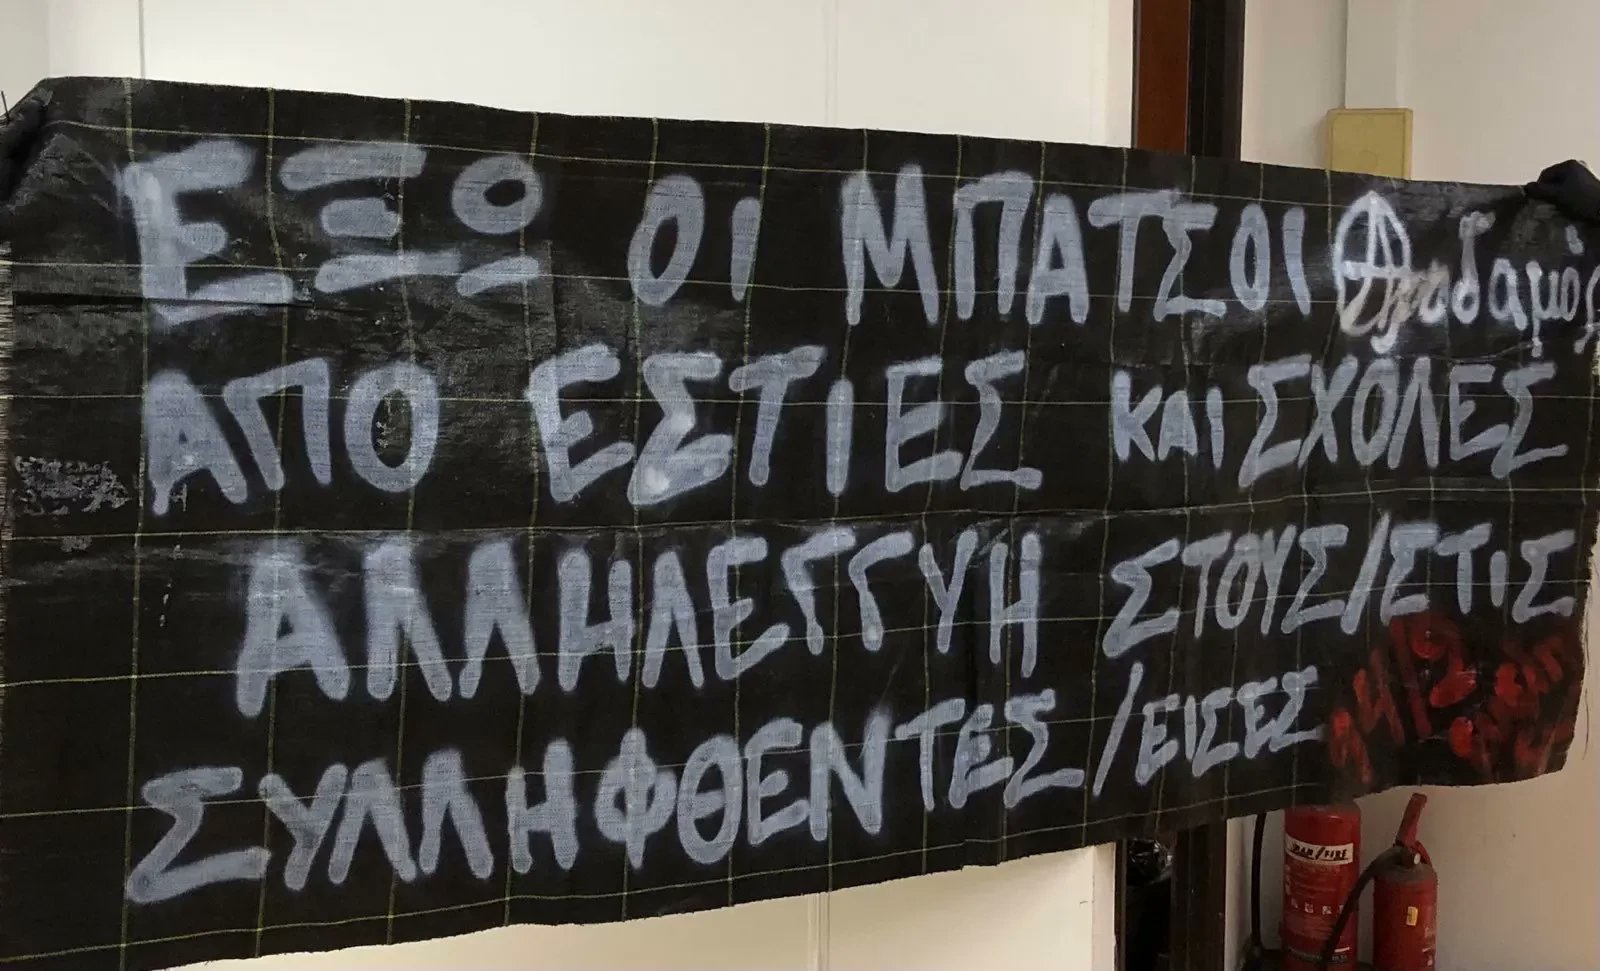 ΕΞΩ ΟΙ ΜΠΑΤΣΟΙ
ΑΠΟ ΕΣΤΙΕΣ ΚΑΙ ΣΧΟΛΕΣ
ΑΛΛΗΛΕΓΓΥΗ ΣΤΟΥΣ/ΣΤΙΣ
ΣΥΛΛΗΦΘΕΝΤΕΣ/ΕΙΣΕΣ
14/12